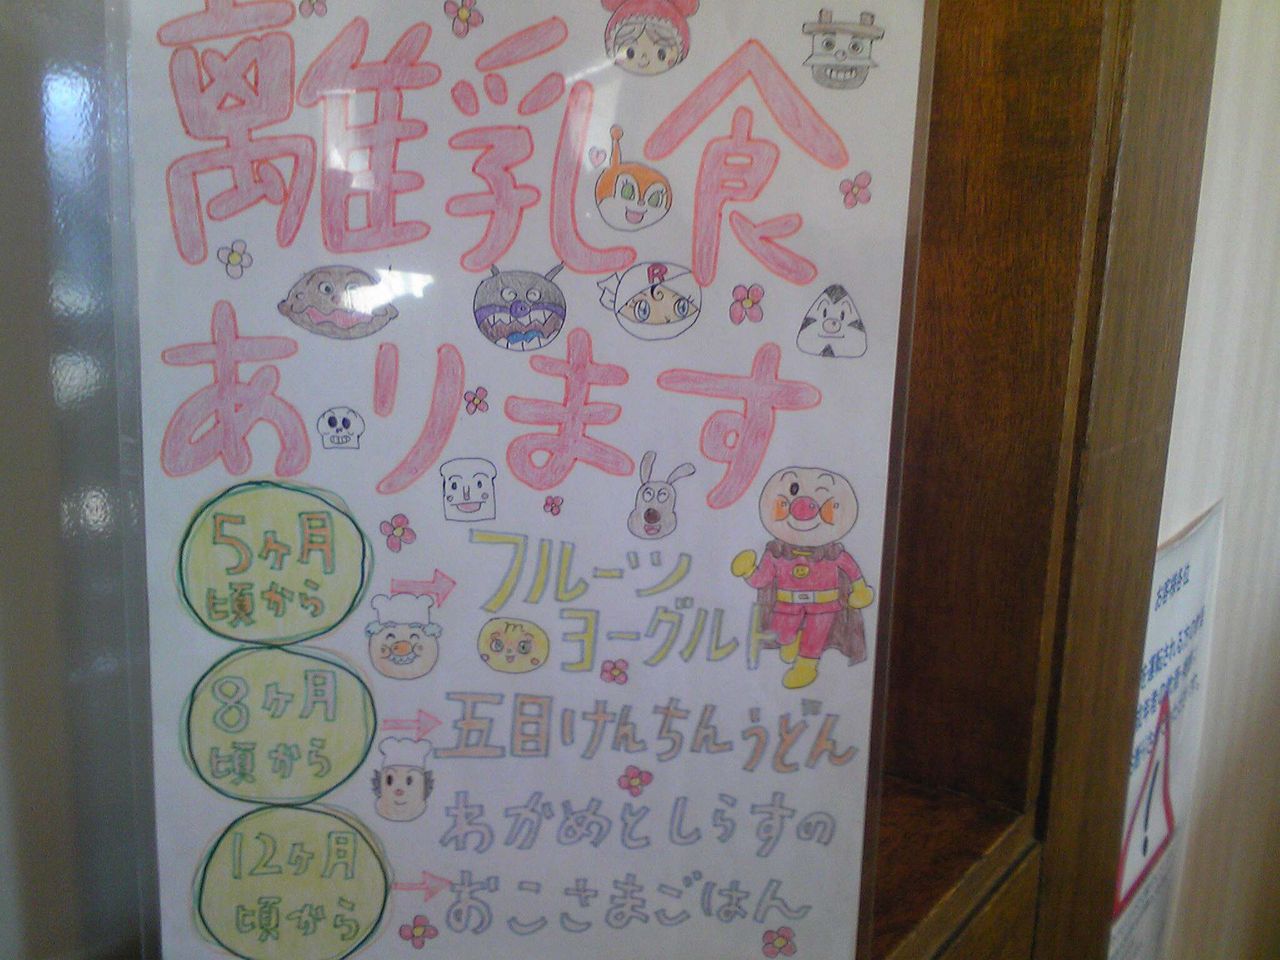 離乳食
あります
R
5ヶ月
頃から
フルーツ
ヨーグルト
8ヶ月
頃から
五目けんちんうどん
12ヶ月
頃から
わかめとしらすの
おこさまごはん
お客様各位